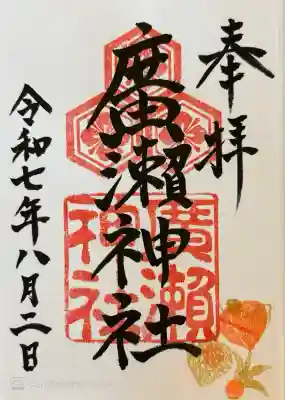 奉拝
廣瀬神社
廣瀬
神社
令和七年八月二日